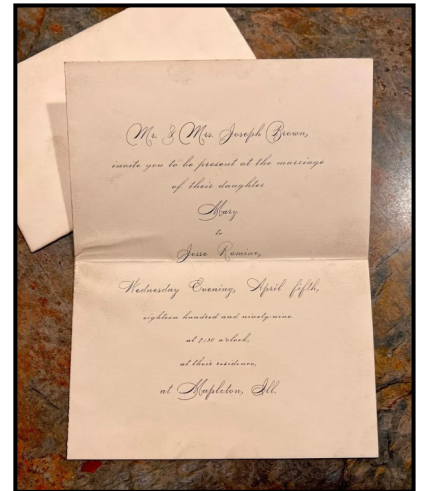 Mr. & Mrs. Joseph Brown,
invite you to be present at the marriage
of their daughter
Mary
to
Jesse Romine,
Wednesday Evening, April fifth,
eighteen hundred and ninety-nine,
at 7:30 o'clock,
at their residence,
at Mapleton, Ill.